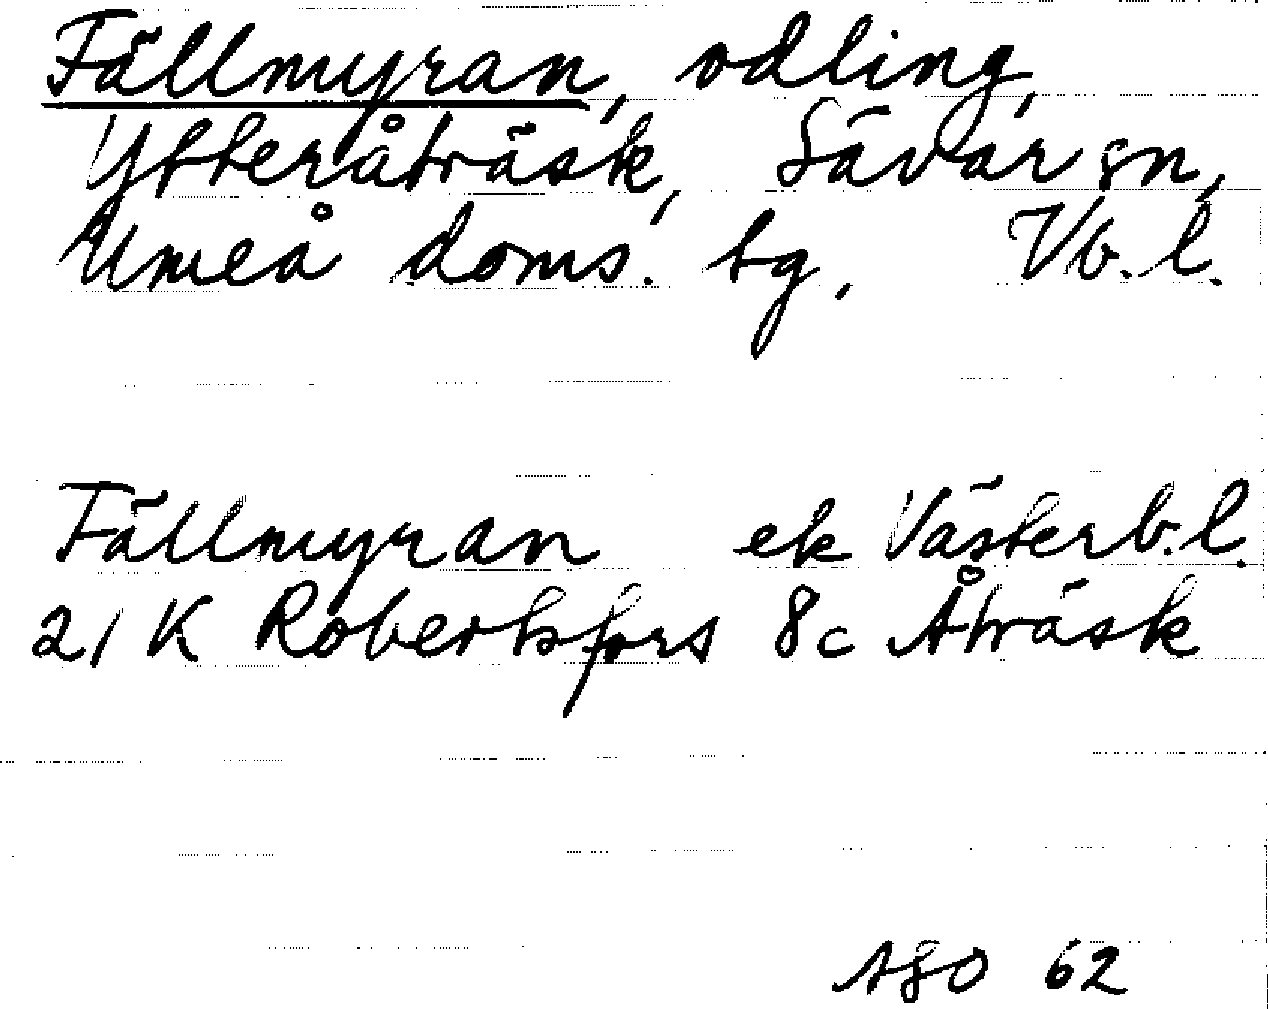 Fällmyran, odling,
Ytteråträsk, Sävar sn,
Umeå doms. tg, Vb. l.
Fällmyran ek Västerb. l.
21 K Robertsfors 8c Åträsk
ASO 62